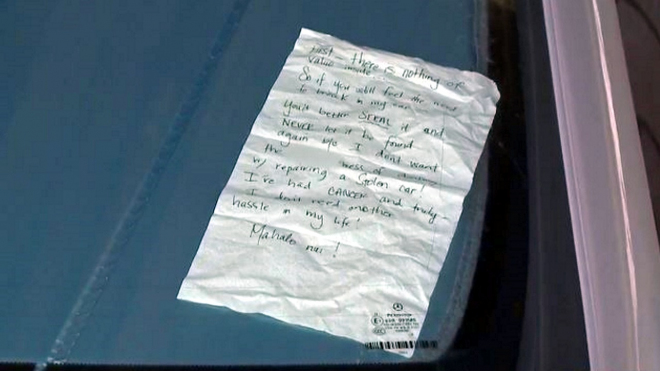 Just - there is nothing of
value inside
So if you still feel the need
to break in my car
You'd better STEAL it and
NEVER let it be found
again b/c I don't want
the mess of
w/ repairing a stolen car!
I've had CANCER and truly
I don't need another
hassle in my life!
Mahalo nui!